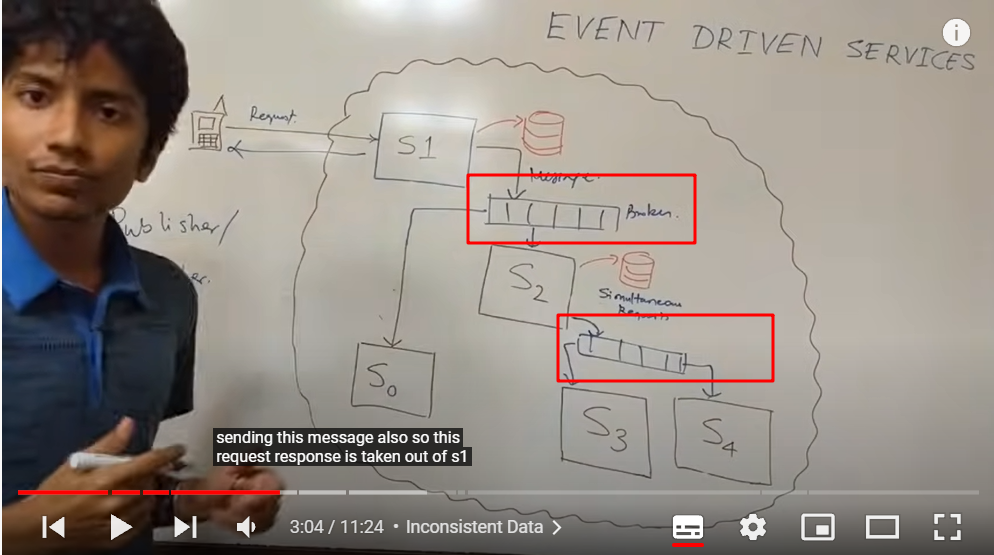 EVENT DRIVEN SERVICES
i
Request.
S1
Message.
Broker.
Publisher/
S2
Simultaneous
Requests
S0
S3
S4
sending this message also so this
request response is taken out of s1
3:04 / 11:24 • Inconsistent Data >